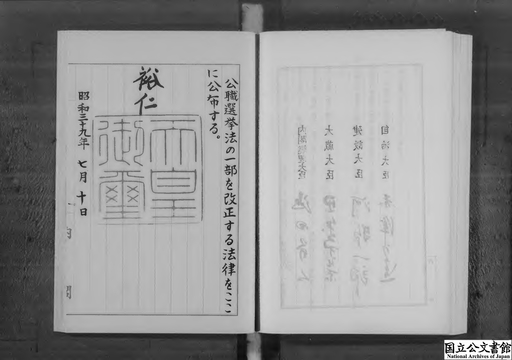 公職選挙法の一部を改正する法律をここ
に公布する。
裕仁
天皇
御璽
昭和三十九年 七月 十日
自治大臣
建設大臣
大蔵大臣
内閣総理大臣
国立公文書館
National Archives of Japan